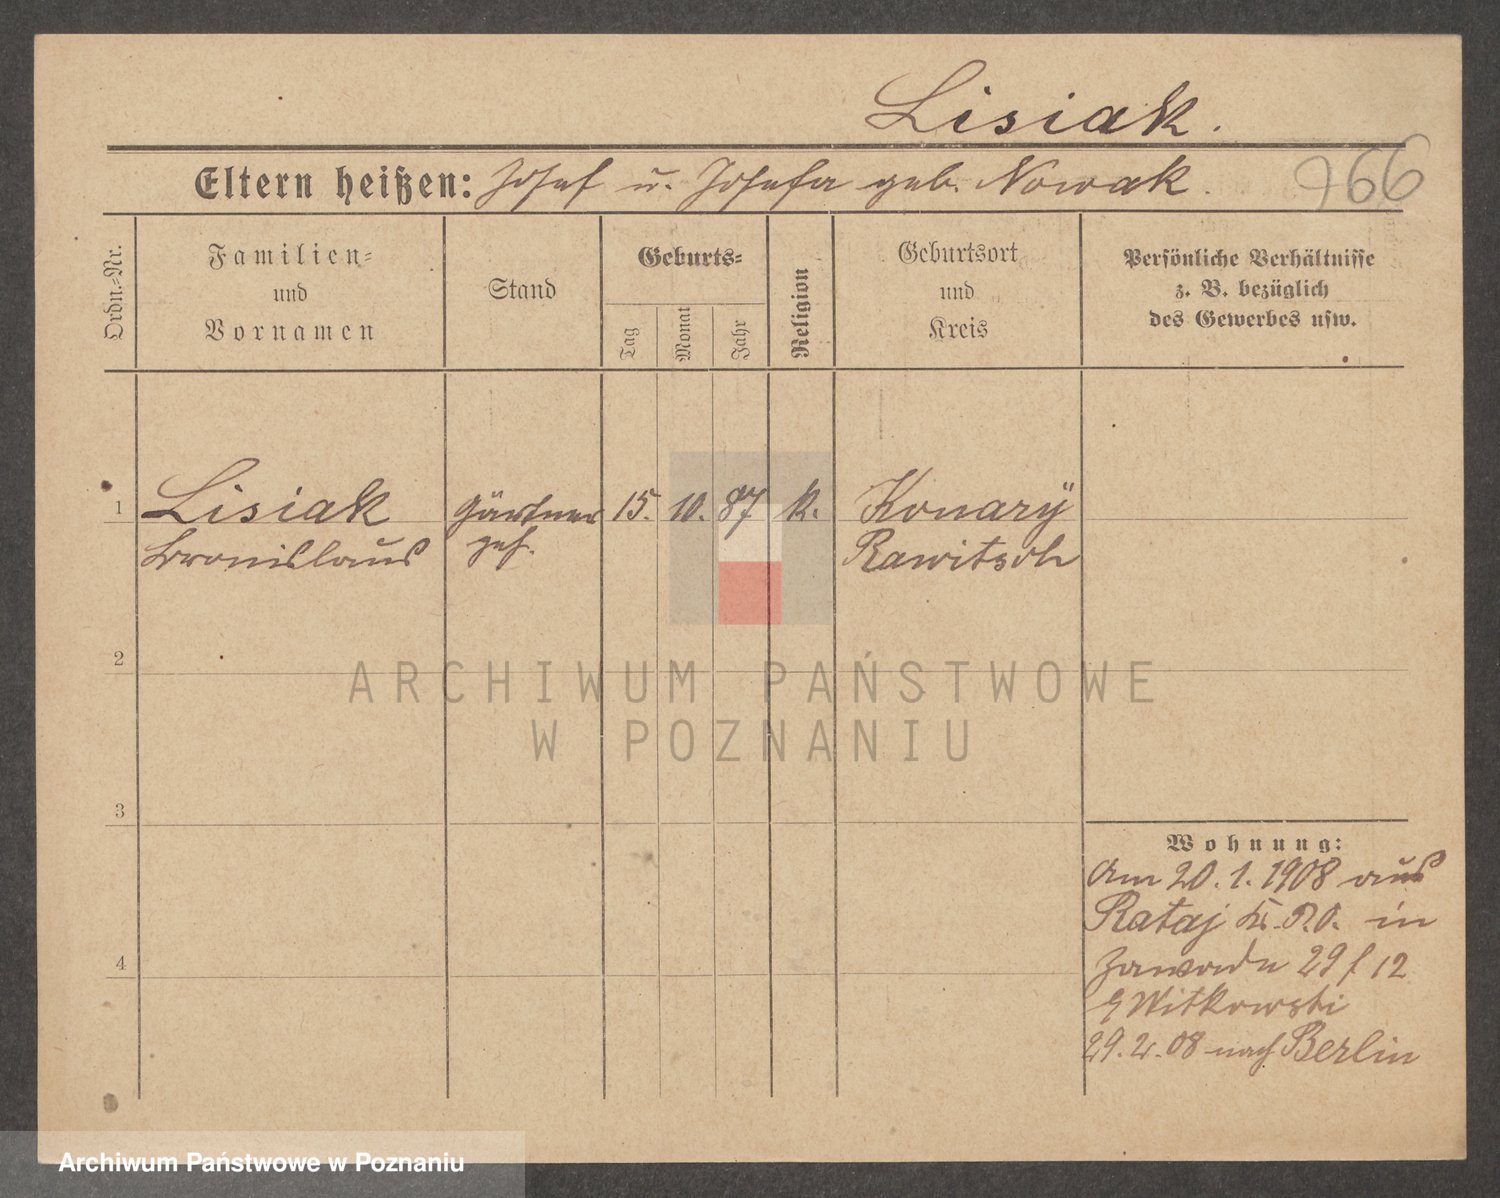 Lisiak.
Eltern heißen: Josef u. Josefa geb. Nowak.
766
Ordn.-Nr.
Familien-
und
Vornamen
Stand
Geburts-
Tag
Monat
Jahr
Religion
Geburtsort
und
Kreis
Persönliche Verhältnisse
z. B. bezüglich
des Gewerbes usw.
1 Lisiak Gärtner 15. 10. 87 k. Konary
Bronislaus geh. Rawitsch
2
ARCHIWUM PAŃSTWOWE
W POZNANIU
3
Wohnung:
Am 20. 1. 1908 aus
Rataj Kr. P.O. in
4
Zawade 29 f 12
Witkowski
29. 2. 08 nach Berlin
Archiwum Państwowe w Poznaniu